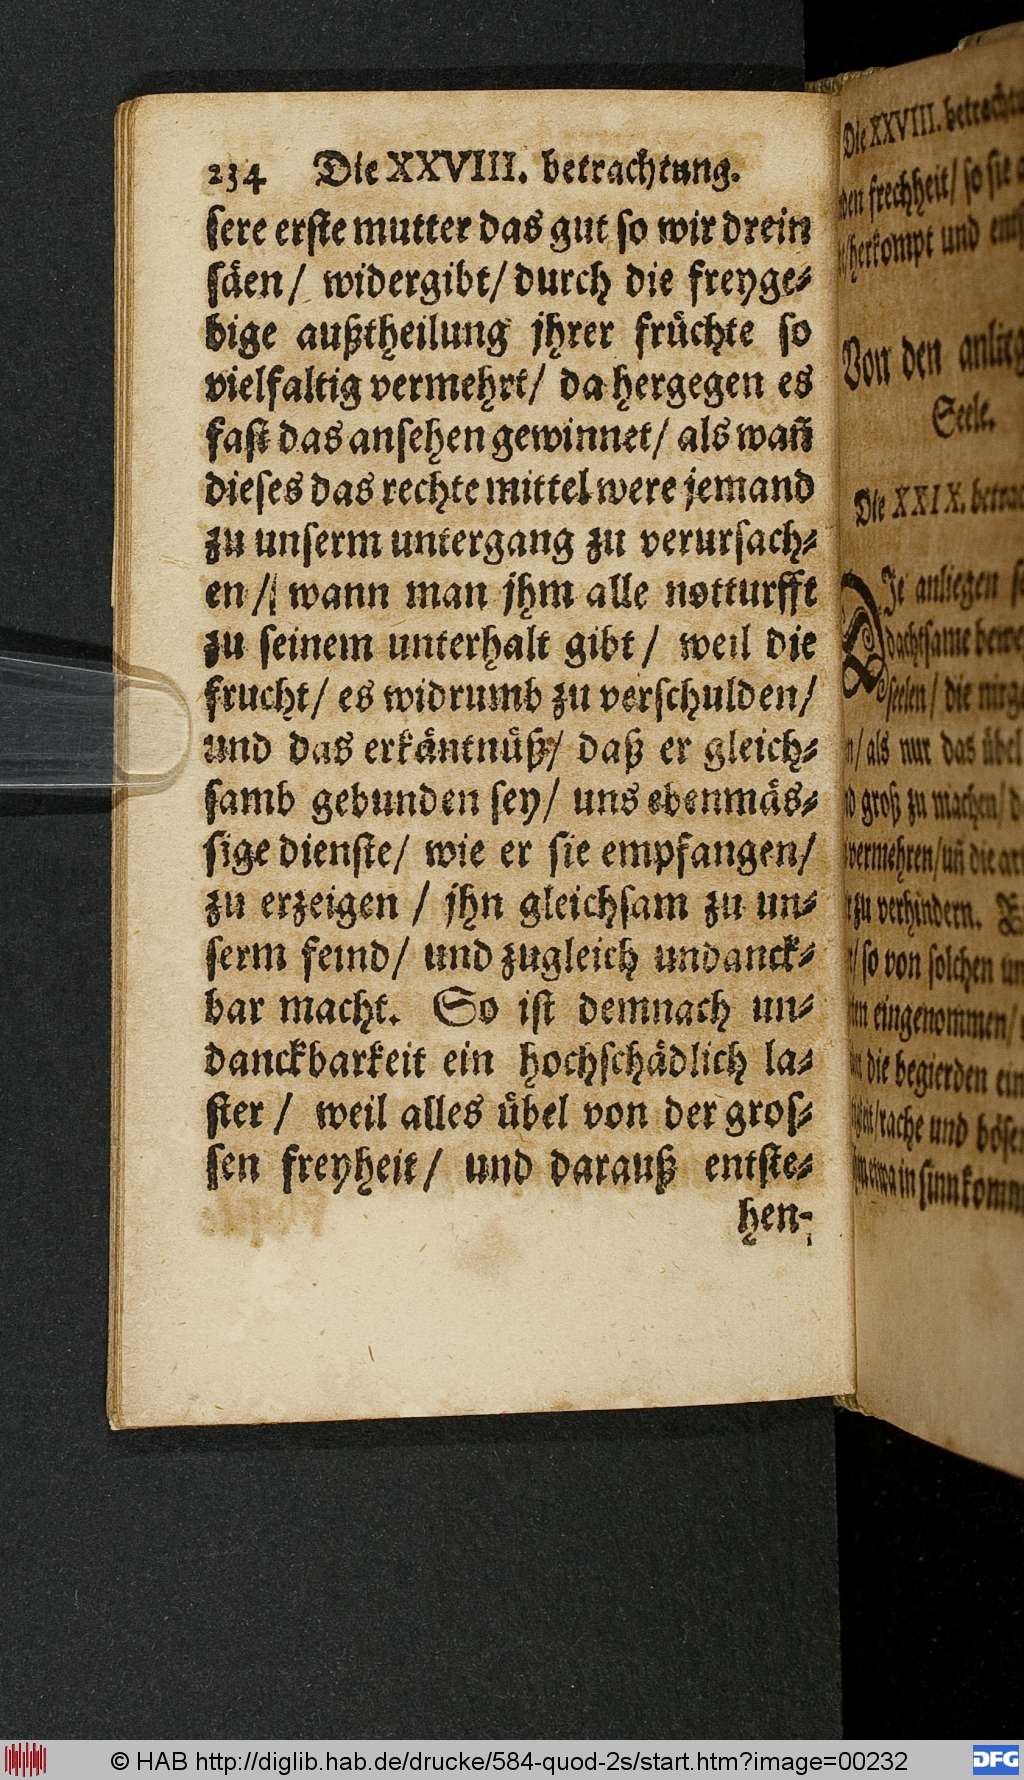 234 Die XXVIII. betrachtung.
sere erste mutter das gut so wir drein
säen/ widergibt/ durch die freyge⸗
bige außtheilung jhrer früchte so
vielfaltig vermehrt/ da hergegen es
fast das ansehen gewinnet/ als wañ
dieses das rechte mittel were jemand
zu unserm untergang zu verursach⸗
en/ wann man jhm alle notturfft
zu seinem unterhalt gibt/ weil die
frucht/ es widrumb zu verschulden/
und das erkäntnüß/ daß er gleich⸗
samb gebunden sey/ uns ebenmäs⸗
sige dienste/ wie er sie empfangen/
zu erzeigen / jhn gleichsam zu un⸗
serm feind/ und zugleich undanck⸗
bar macht. So ist demnach un⸗
danckbarkeit ein hochschädlich la⸗
ster / weil alles übel von der gros⸗
sen freyheit/ und darauß entste⸗
hen⸗
Die XXVIII.
frechheit/ so sie
herkompt und
Von den
Seele.
Die XXIX.
Je anliegen
dachtsame
seelen/ die
als nur das übel
groß zu machen/
vermehren/ uñ die
zu verhindern.
so von solchen
eingenommen/
die begierden
rache und
in sinn
© HAB http://diglib.hab.de/drucke/584-quod-2s/start.htm?image=00232
DFG